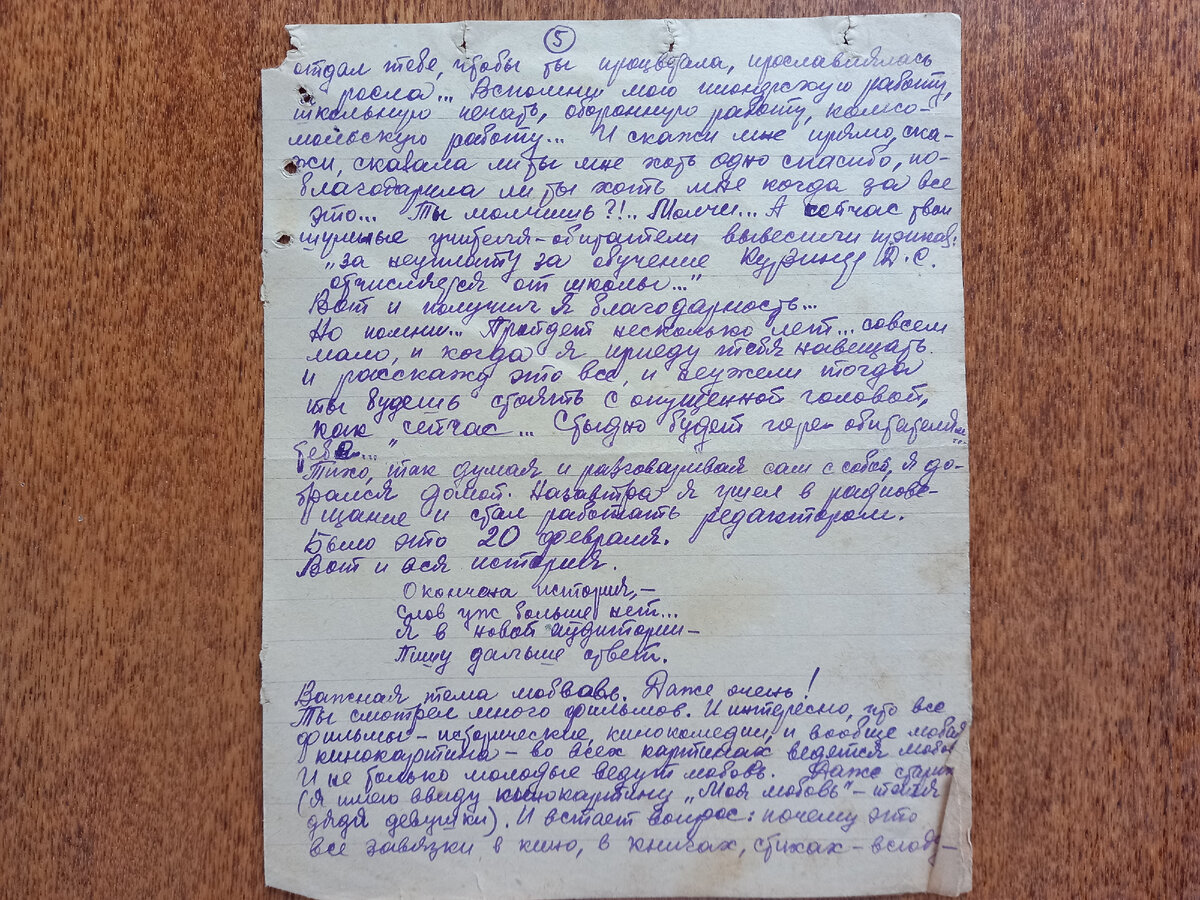 5
отдал тебе, чтобы ты процветала, прославлялась
росла... Вспомни мою пионерскую работу,
школьную печать, оборонную работу, комсо-
мольскую работу... И скажи мне прямо, ска-
жи, сказала ли ты мне хоть одно спасибо, по-
благодарила ли ты хоть мне когда за все
это... Ты молчишь?!.. Молчи... А сейчас твои
шумные учителя-обитатели вывесили приказ:
„за неуплату за обучение Д.С.
отчисляется от школы..."
Вот и получил я благодарность...
Но помни... Пройдет несколько лет... совсем
мало, и когда я приеду тебя навещать
и расскажу это все, и неужели тогда
ты будешь стоять с опущенной головой,
как сейчас... Стыдно будет обитателям
тебе..."
Тихо, так думая и разговаривая сам с собой, я до-
брался домой. Назавтра я ушел в радиове-
щание и стал работать редактором.
Было это 20 февраля.
Вот и вся история.
Окончена история,—
Слов уж больше нет...
Я в новой аудитории—
Пишу дальше ответ.
Важная тема любовь. Даже очень!
Ты смотрел много фильмов. И интересно, что все
фильмы — исторические, кинокомедии, и вообще любая
кинокартина — во всех картинах ведется любовь
И не только молодые ведут любовь. Даже старик
(я имею ввиду кинокартину „Моя любовь" —
дядя девушки). И встает вопрос: почему это
все завязки в кино, в книгах, стихах — всюду —